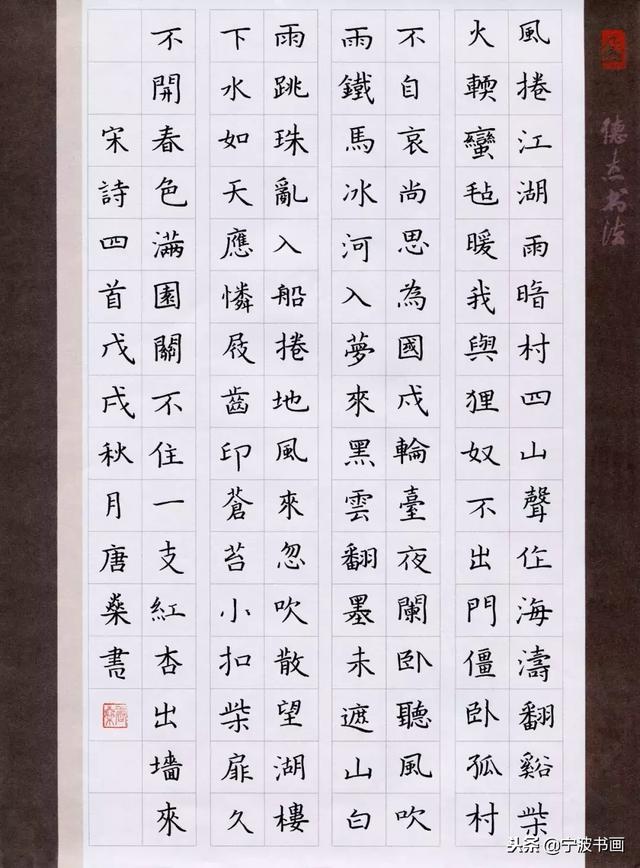 風捲江湖雨暗村四山聲作海濤翻谿柴
火輭蠻毡暖我與狸奴不出門僵卧孤村
不自哀尚思為國戍輪臺夜闌卧聽風吹
雨鐵馬冰河入夢來黑雲翻墨未遮山白
雨跳珠亂入船捲地風來忽吹散望湖樓
下水如天應憐屐齒印蒼苔小扣柴扉久
不開春色滿園關不住一支紅杏出墻來
宋詩四首戊戌秋月唐燊書
头条@宁波书画